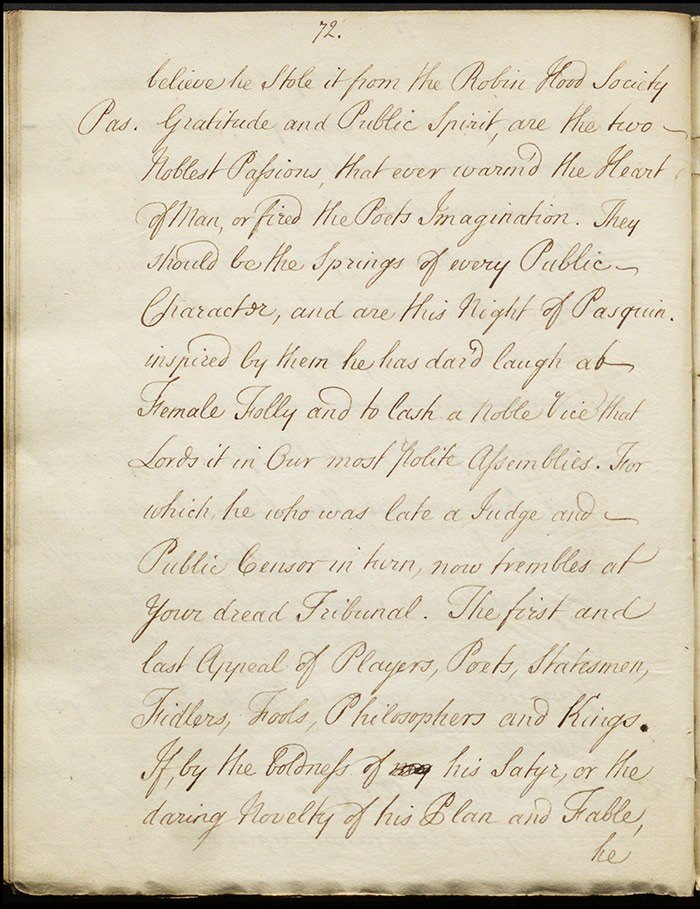 72.
believe he Stole it from the Robin Hood Society
Pas. Gratitude and Public Spirit, are the two
Noblest Passions, that ever warm'd the Heart
of Man, or fired the Poets Imagination. They
should be the Springs of every Public
Character, and are this Night of Pasquin.
inspired by them he has dar'd laugh at
Female Folly and to lash a Noble Vice that
Lords it in Our most Polite Assemblies. For
which, he who was late a Judge and
Public Censor in turn, now trembles at
Your dread Tribunal. The first and
last Appeal of Players, Poets, Statesmen,
Fidlers, Fools, Philosophers and Kings.
If, by the boldness of his Satyr, or the
daring Novelty of his Plan and Fable,
he